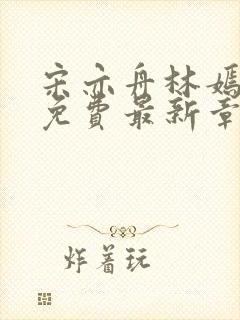 宋亦舟林嫣
免费最新章
炸着玩